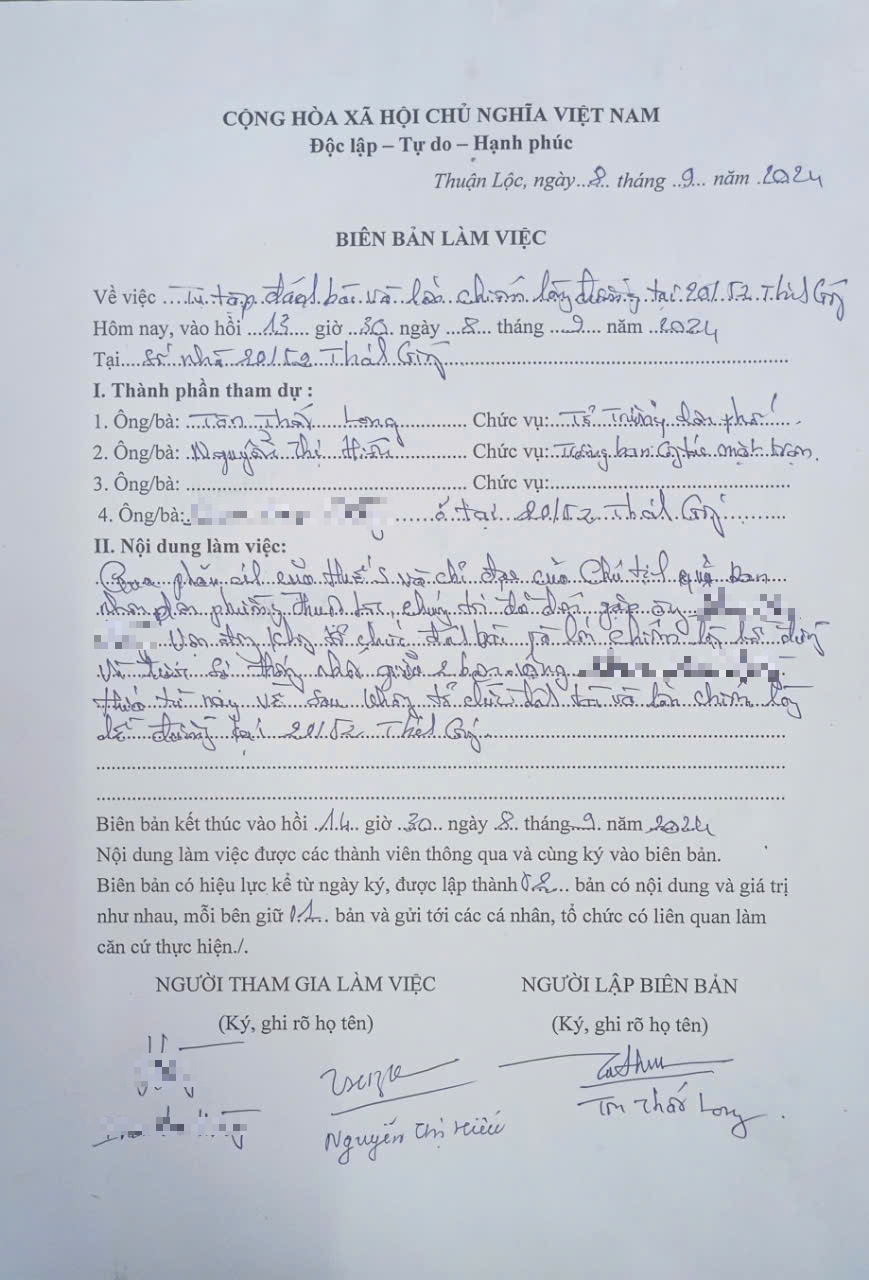 CỘNG HÒA XÃ HỘI CHỦ NGHĨA VIỆT NAM
Độc lập – Tự do – Hạnh phúc
Thuận Lộc, ngày 8 tháng 9 năm 2024
BIÊN BẢN LÀM VIỆC
Về việc Tụ tập đánh bài và lấn chiếm lòng đường tại 20/52
Hôm nay, vào hồi 13 giờ 30 ngày 8 tháng 9 năm 2024
Tại Số nhà 20/52
I. Thành phần tham dự :
1. Ông/bà: Tôn Thất Long Chức vụ: Tổ Trưởng dân phố
2. Ông/bà: Nguyễn Thị Hiếu Chức vụ: Trưởng ban Công tác mặt trận
3. Ông/bà: Chức vụ:
4. Ông/bà: ở tại 20/52
II. Nội dung làm việc:
Qua phản ánh của và chỉ đạo của Chủ tịch ban
nhân dân phường chúng tôi đã gặp
không tổ chức và lấn chiếm
giữa 2
từ nay về sau không tổ chức và lấn chiếm lòng
lề đường tại 20/52
Biên bản kết thúc vào hồi 14 giờ 30 ngày 8 tháng 9 năm 2024
Nội dung làm việc được các thành viên thông qua và cùng ký vào biên bản.
Biên bản có hiệu lực kể từ ngày ký, được lập thành 02 bản có nội dung và giá trị
như nhau, mỗi bên giữ 01 bản và gửi tới các cá nhân, tổ chức có liên quan làm
căn cứ thực hiện./.
NGƯỜI THAM GIA LÀM VIỆC NGƯỜI LẬP BIÊN BẢN
(Ký, ghi rõ họ tên) (Ký, ghi rõ họ tên)
Nguyễn Thị Hiếu Tôn Thất Long